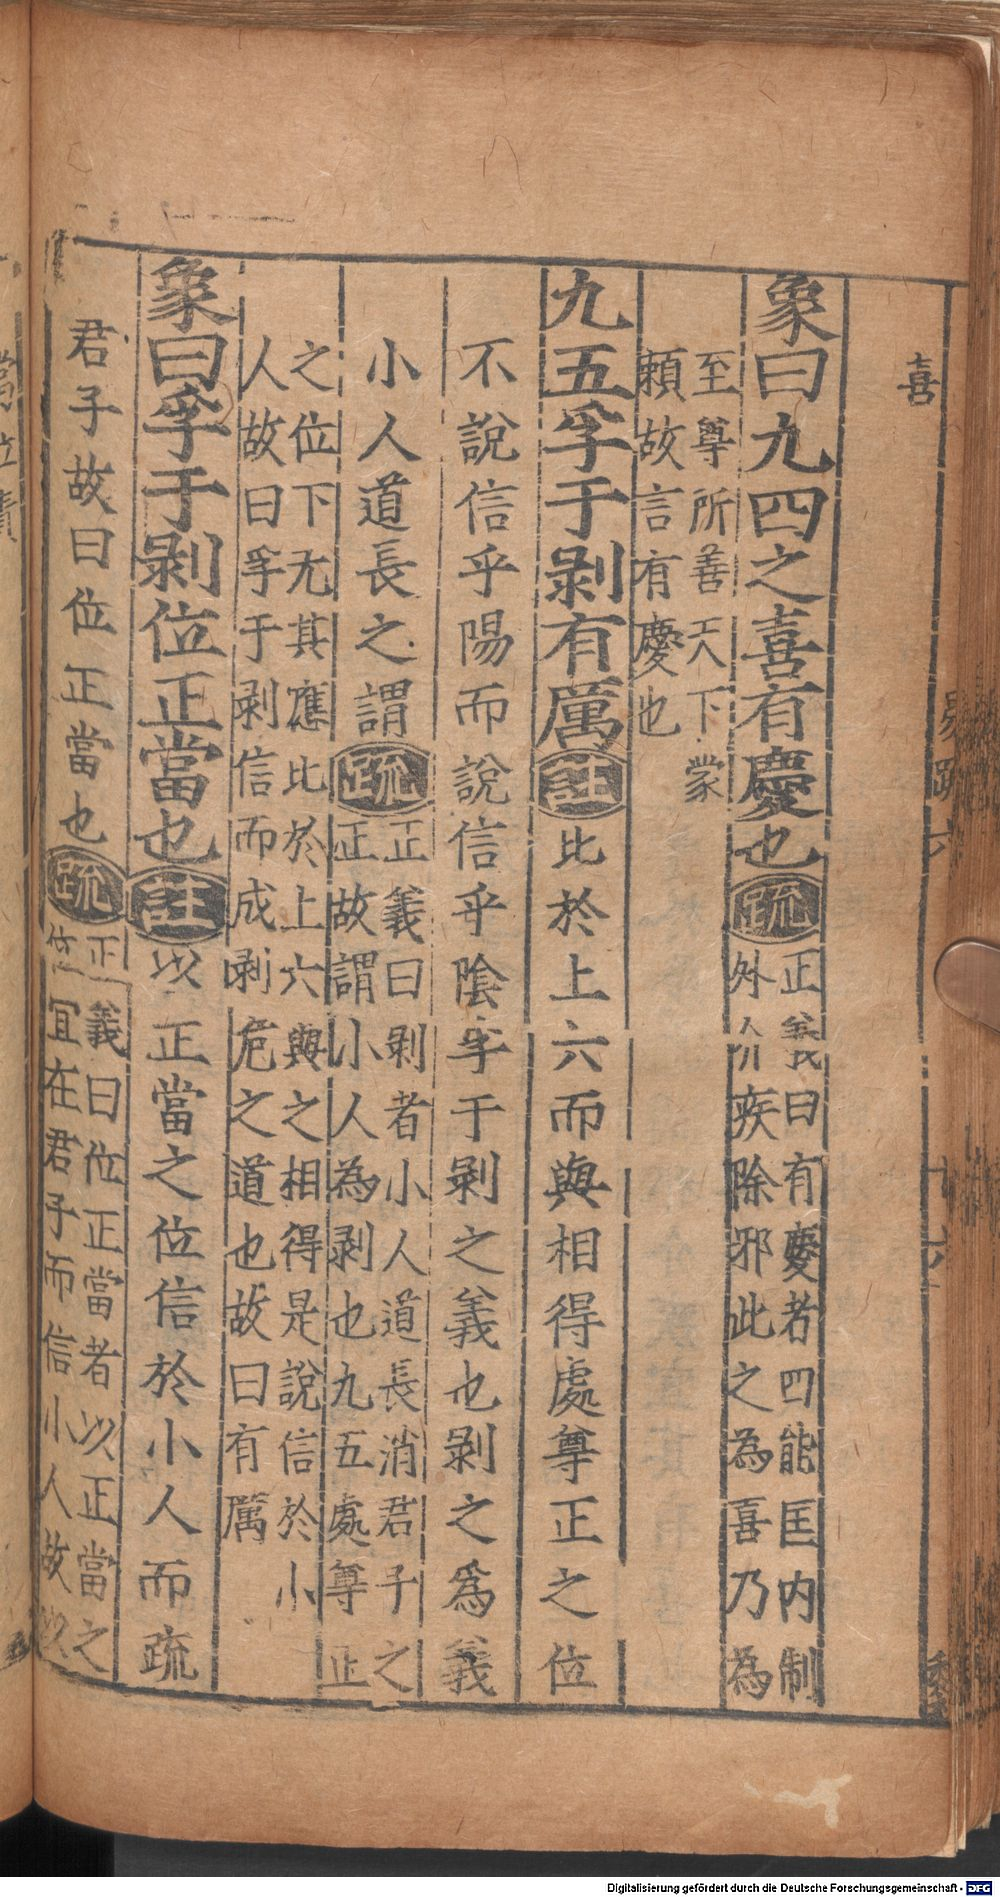 喜
象曰九四之喜有慶也 疏 正義曰有慶者四能匡内制
外介疾除邪此之為喜乃為
至尊所善天下蒙
頼故言有慶也
九五孚于剥有厲 註 比於上六而與相得處尊正之位
不說信乎陽而說信乎陰孚于剥之義也剥之為義
小人道長之謂 疏 正義曰剥者小人道長消君子之
正故謂小人為剥也九五處尊正
之位下无其應比於上六與之相得是說信於小
人故曰孚于剥信而成剥危之道也故曰有厲
象曰孚于剥位正當也 註 以正當之位信於小人而疏
君子故曰位正當也 疏 正義曰位正當者以正當之
位宜在君子而信小人故以
易疏六
十六
Digitalisierung gefördert durch die Deutsche Forschungsgemeinschaft - DFG